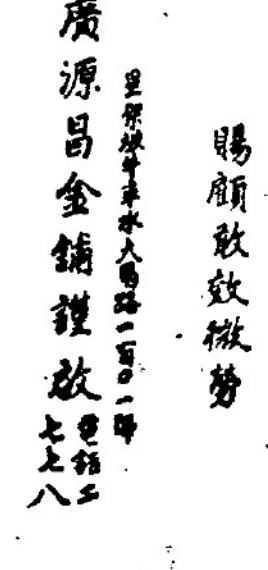 賜顧敢效微勞
星架坡牛車水大馬路一百0一號
廣源昌金舖謹啟
電話工
七七八